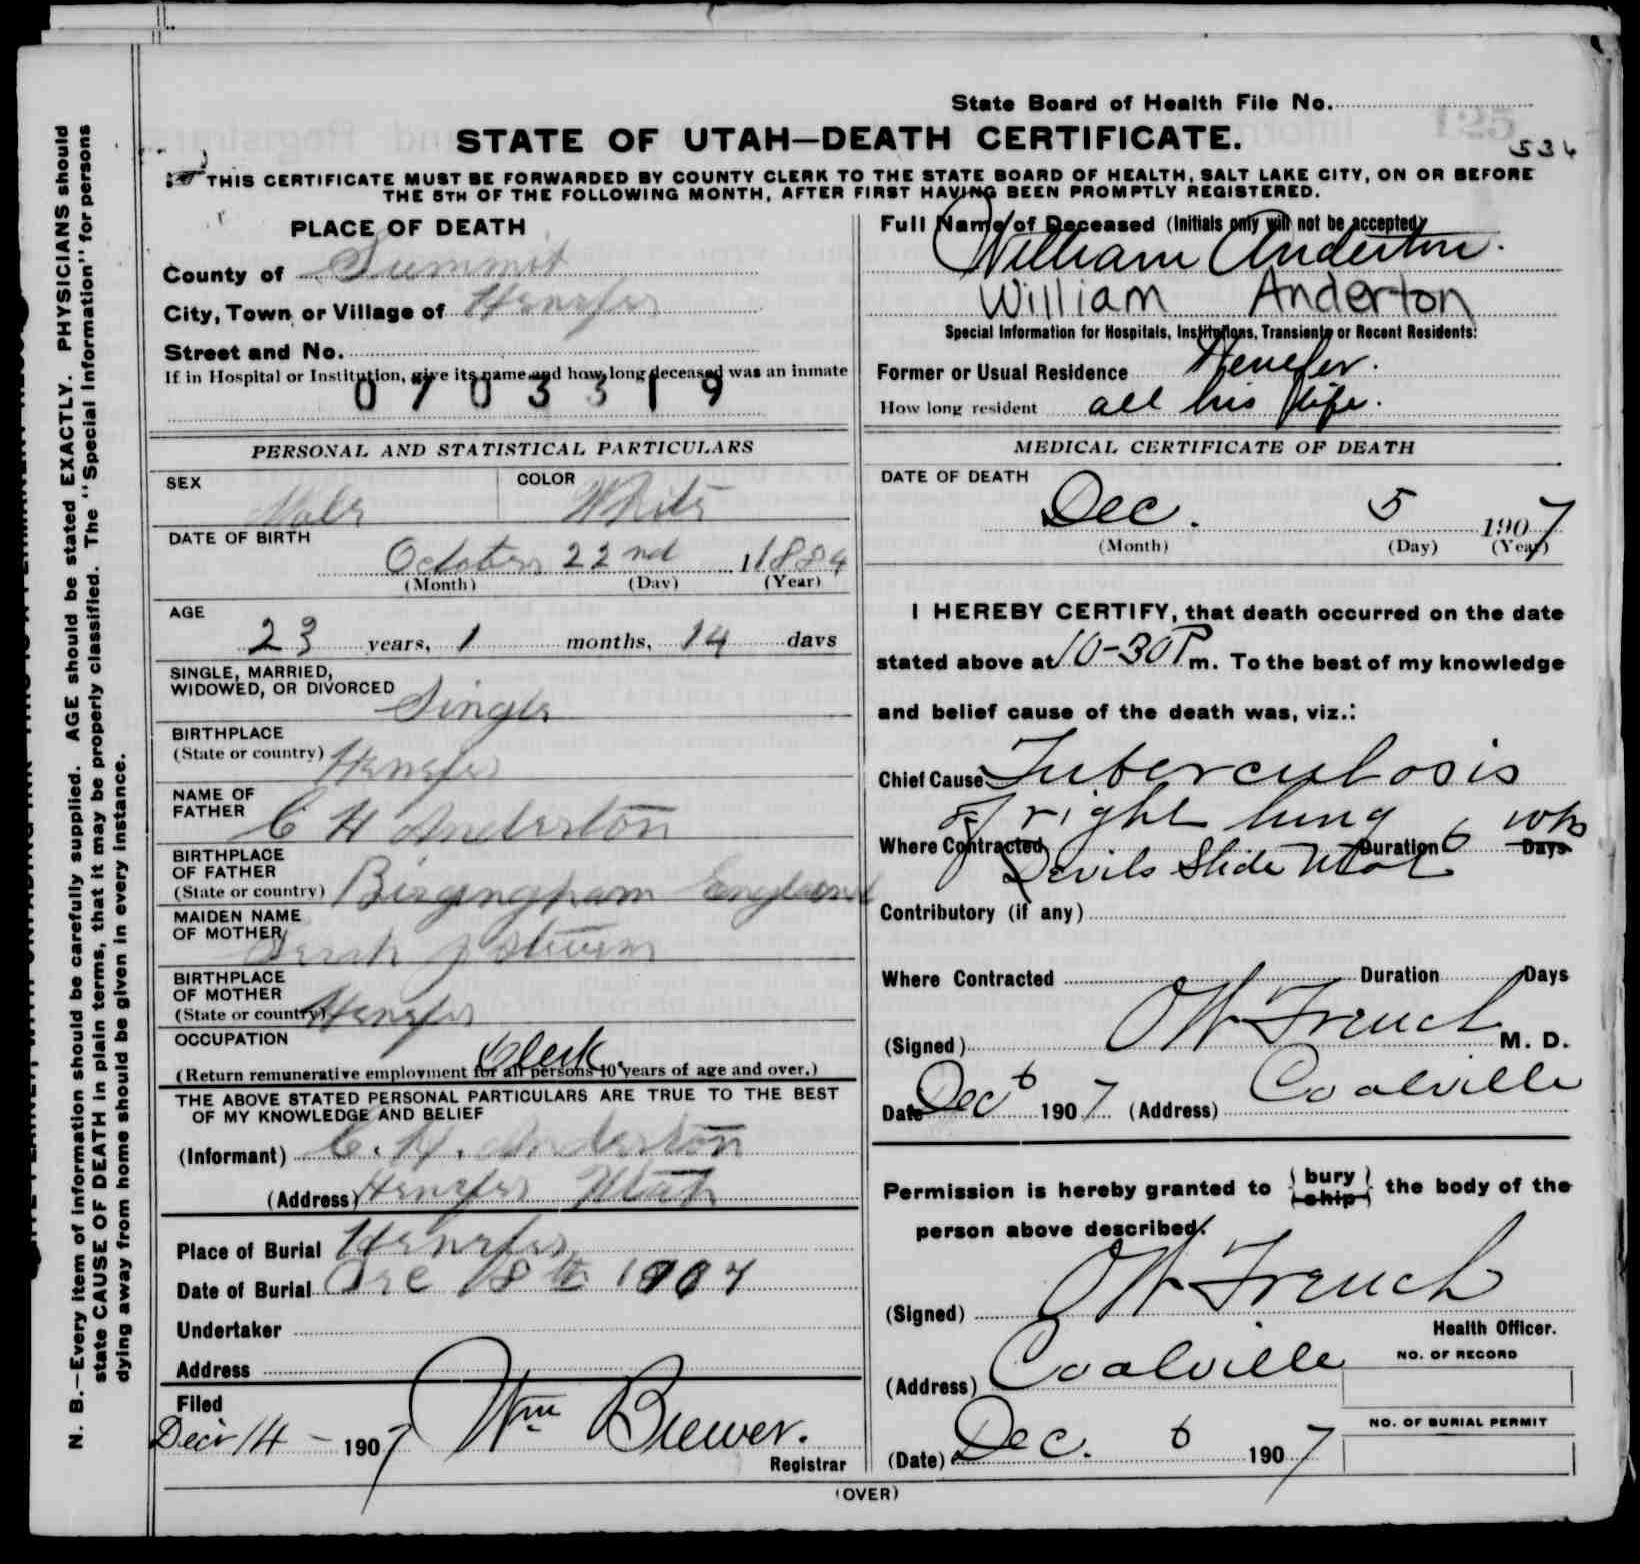 State Board of Health File No.
125
534
STATE OF UTAH—DEATH CERTIFICATE.
THIS CERTIFICATE MUST BE FORWARDED BY COUNTY CLERK TO THE STATE BOARD OF HEALTH, SALT LAKE CITY, ON OR BEFORE
THE 5TH OF THE FOLLOWING MONTH, AFTER FIRST HAVING BEEN PROMPTLY REGISTERED.
PLACE OF DEATH
County of Summit
City, Town or Village of Henefer
Street and No.
If in Hospital or Institution, give its name and how long deceased was an inmate
0703319
PERSONAL AND STATISTICAL PARTICULARS
SEX Male COLOR White
DATE OF BIRTH
October 22nd 1884
(Month) (Day) (Year)
AGE
23 years, 1 months, 14 days
SINGLE, MARRIED,
WIDOWED, OR DIVORCED Single
BIRTHPLACE
(State or country) Henefer
NAME OF
FATHER C H Anderton
BIRTHPLACE
OF FATHER
(State or country) England
MAIDEN NAME
OF MOTHER
BIRTHPLACE
OF MOTHER
(State or country) Henefer
OCCUPATION
Clerk.
(Return remunerative employment for all persons 10 years of age and over.)
THE ABOVE STATED PERSONAL PARTICULARS ARE TRUE TO THE BEST
OF MY KNOWLEDGE AND BELIEF
(Informant) C. H. Anderton
(Address) Henefer Utah
Place of Burial Henefer
Date of Burial Dec 8th 1907
Undertaker
Address
Filed
Decr 14 - 1907 Wm Brewer.
Registrar
Full Name of Deceased (Initials only will not be accepted)
William Anderton.
William Anderton
Special Information for Hospitals, Institutions, Transients or Recent Residents:
Former or Usual Residence Henefer.
How long resident all his life.
MEDICAL CERTIFICATE OF DEATH
DATE OF DEATH
Dec. 5 1907
(Month) (Day) (Year)
I HEREBY CERTIFY, that death occurred on the date
stated above at 10-30 P m. To the best of my knowledge
and belief cause of the death was, viz.:
Chief Cause Tuberculosis
of right lung
Where Contracted Devils Slide Utah Duration 6 Days
Contributory (if any)
Where Contracted Duration Days
(Signed) O W French M. D.
Date Dec 6 1907 (Address) Coalville
Permission is hereby granted to (bury) (ship) the body of the
person above described.
(Signed) O W French
Health Officer.
(Address) Coalville
NO. OF RECORD
NO. OF BURIAL PERMIT
(Date) Dec. 6 1907
(OVER)
N. B.—Every item of information should be carefully supplied. AGE should be stated EXACTLY. PHYSICIANS should
state CAUSE OF DEATH in plain terms, that it may be properly classified. The "Special Information" for persons
dying away from home should be given in every instance.